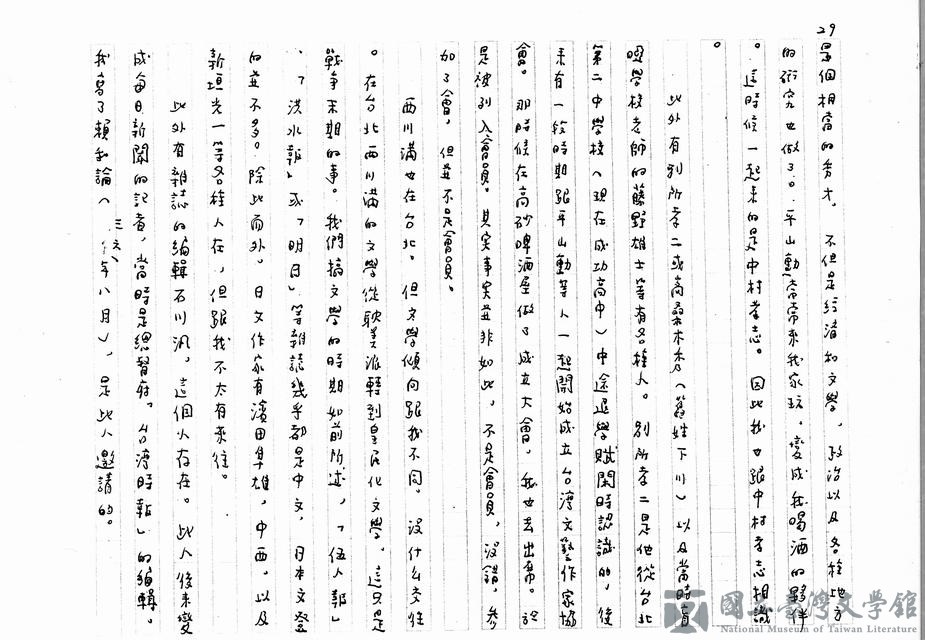 29
是個相當的秀才，不但是經濟和文學，政治以及各種地方
的研究也做了。平山勳常常來我家玩，變成我喝酒的夥伴
。這時候一起來的是中村孝志。因此我也跟中村孝志相識
。
此外有別所孝二或高桑末秀（舊姓下川）以及當時盲
啞學校老師的藤野雄士等有各種人。別所孝二是他從台北
第二中學校（現在成功高中）中途退學賦閒時認識的。後
來有一段時期跟平山勳等人一起開始成立台灣文藝作家協
會。那時候在高砂啤酒屋做了成立大會，我也去出席。於
是被列入會員。其實事實並非如此，不是會員，沒錯，參
加了會，但並不是會員。
西川滿也在台北。但文學傾向跟我不同。沒什么交往
。在台北西川滿的文學從耽美派轉到皇民化文學，這只是
戰爭末期的事。我們搞文學的時期如前所述，「伍人報」
、「洪水報」或「明日」等雜誌幾乎都是中文，日本文登
的並不多。除此而外，日文作家有濱田隼雄，中西，以及
新垣光一等各種人在，但跟我不太有來往。
此外有雜誌的編輯石川汎，這個人存在。此人後來變
成每日新聞的記者，當時是總督府，台灣時報」的編輯。
我寫了賴和論（　年八月），是此人邀請的。
國立臺灣文學館
National Museum of Taiwan Literature